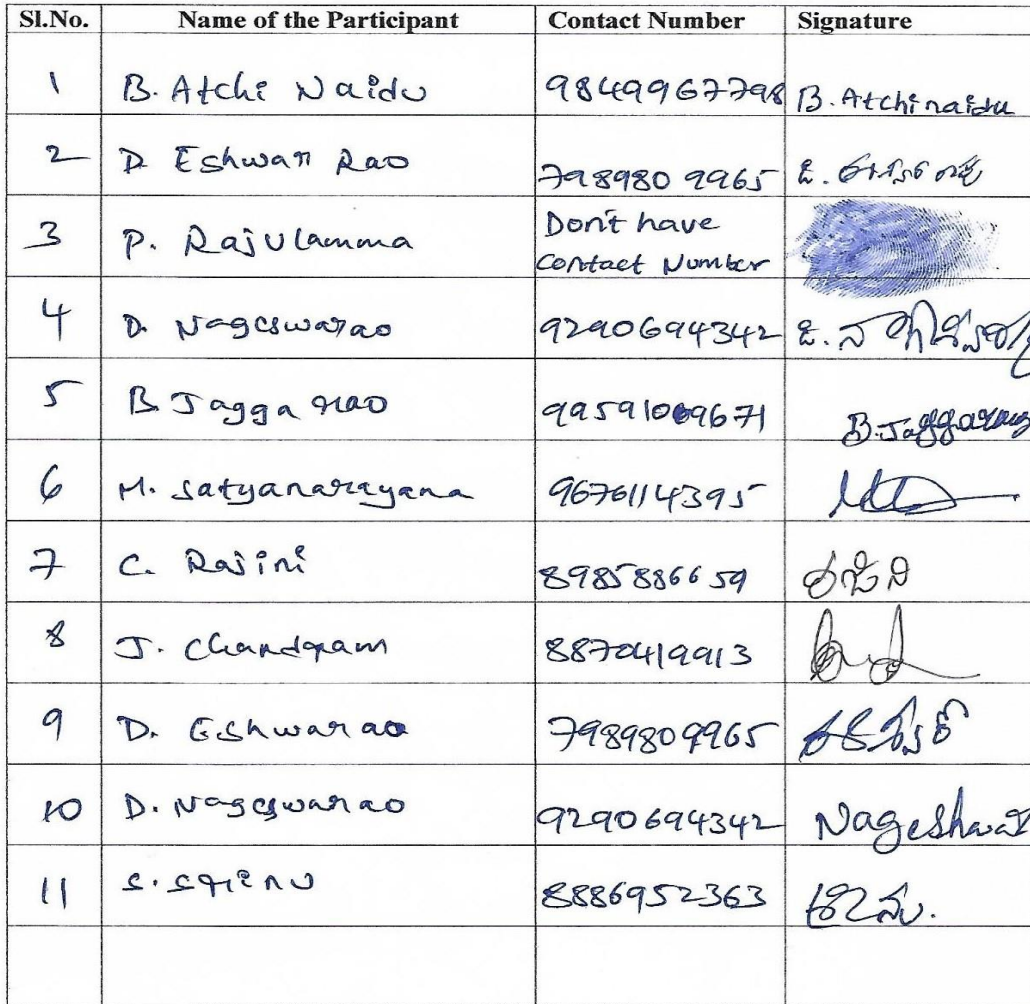 Sl.No. Name of the Participant Contact Number Signature
1 B. Atchi Naidu 9849967798 B. Atchinaidu
2 D. Eshwar Rao 7989809965 డి. ఈశ్వర రావు
3 P. Rajulamma Don't have
Contact Number
4 D. Nageswarao 9290694342 డి. నాగేశ్వరరావు
5 B. Jagga rao 9959109671 B. Jaggarao
6 M. Satyanarayana 9676114395
7 C. Rajini 8985886659 రజిని
8 J. Chandram 8870419913
9 D. Eshwarao 7989809965
10 D. Nageswarao 9290694342 Nageshwar
11 S. Srinu 8886952363 శ్రీను.